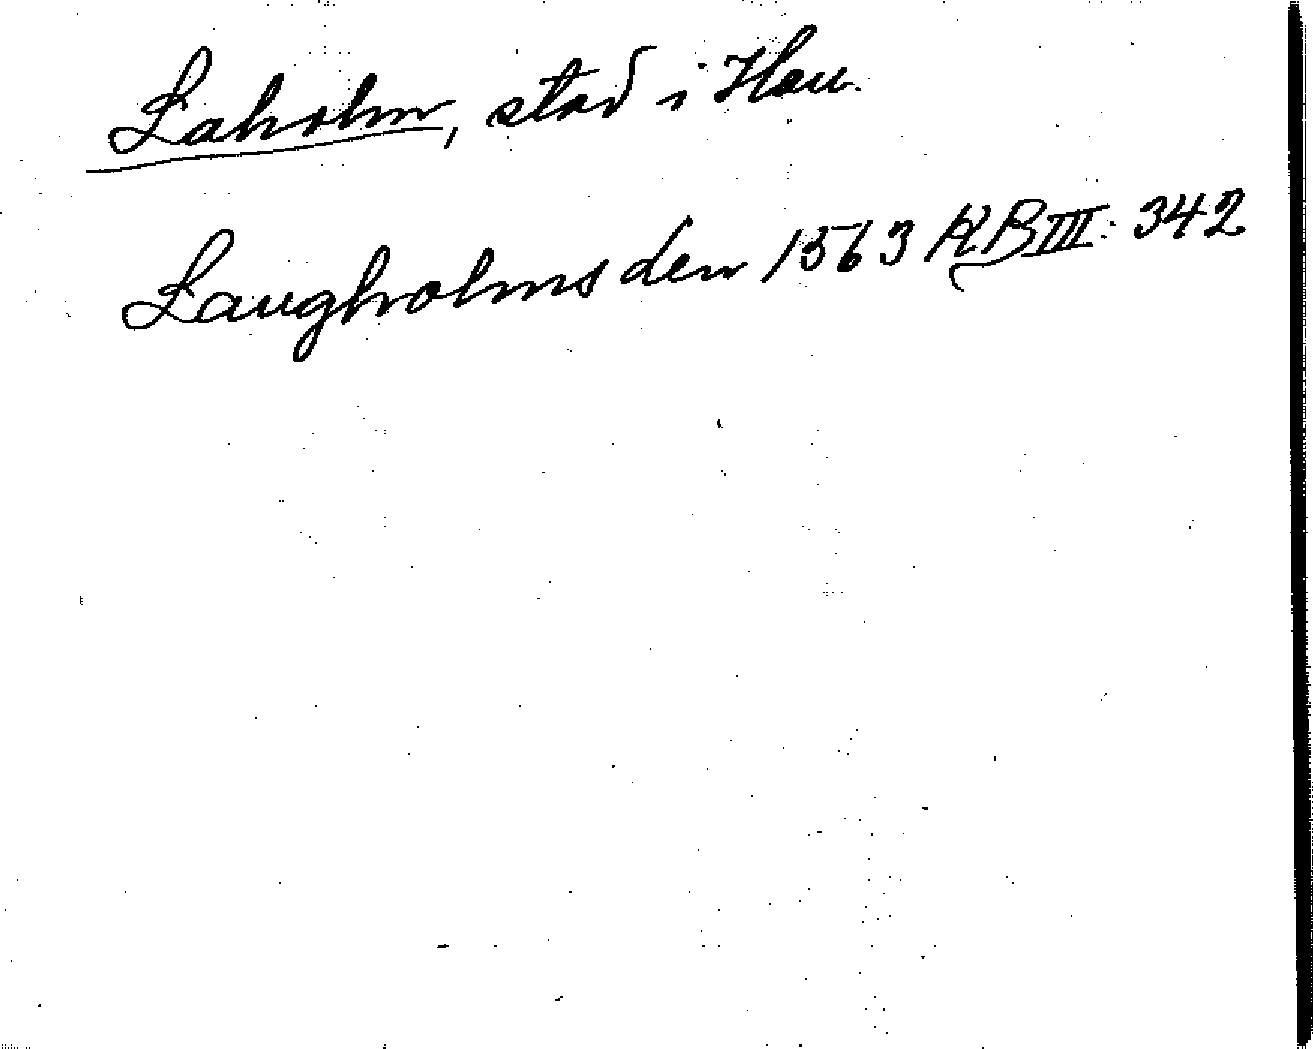 Laholm, stad i Hall.
Laugholms den 1563 KB III: 342